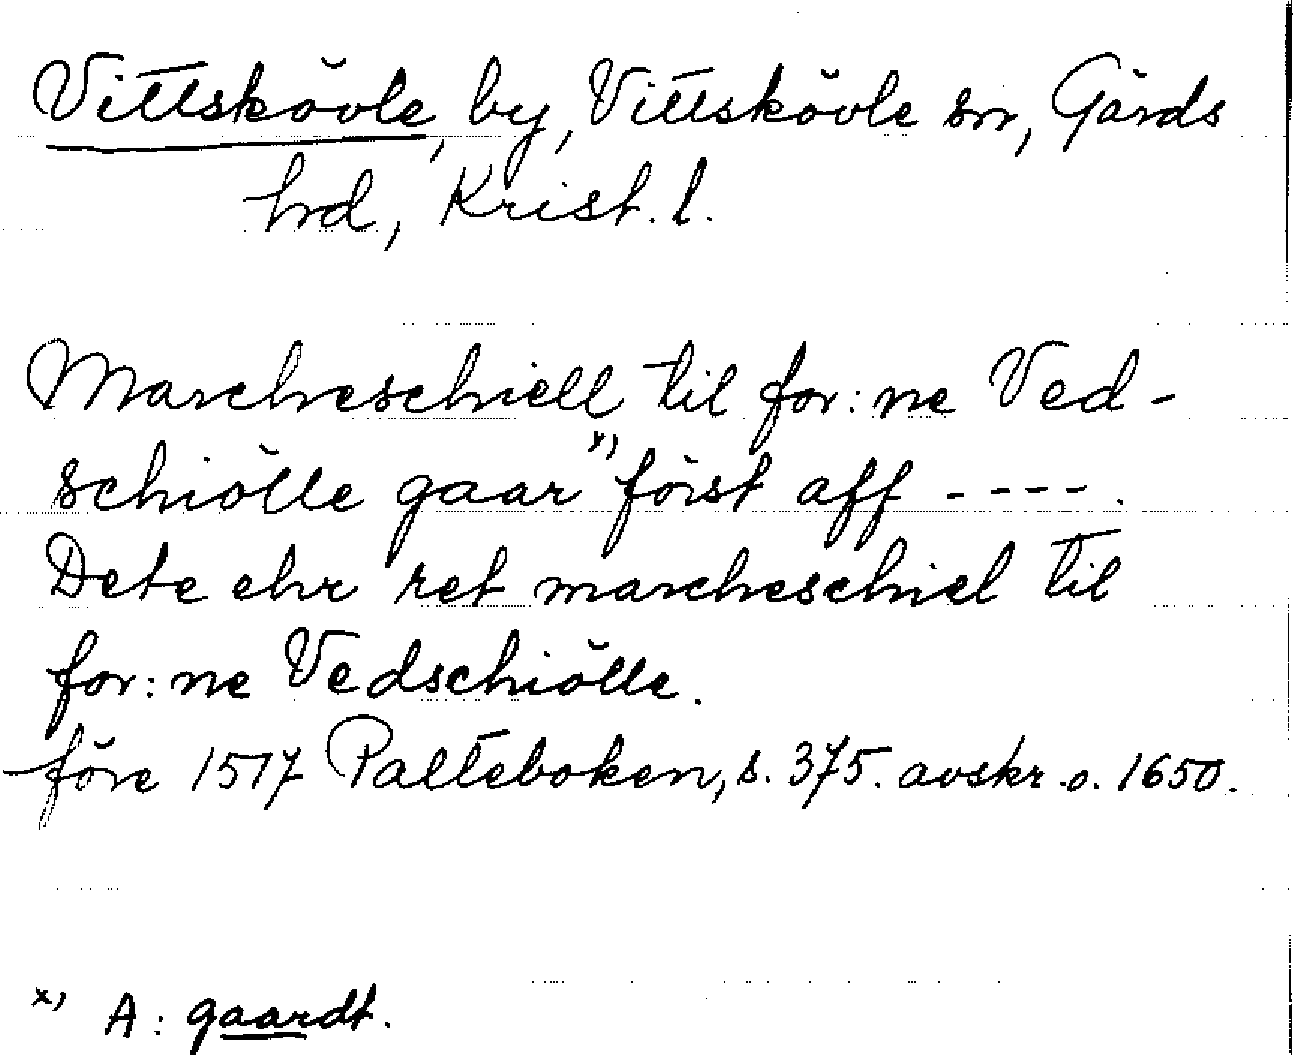 Vittskövle, by, Vittskövle sn, Gärds
hrd, Krist. l.
Marcheschiell til for:ne Ved-
schiölle gaar x) först aff ----.
Dete ehr ret marcheschiel til
for:ne Vedschiölle.
före 1517 Palteboken, s. 375. avskr. o. 1650.
x) A: gaardt.